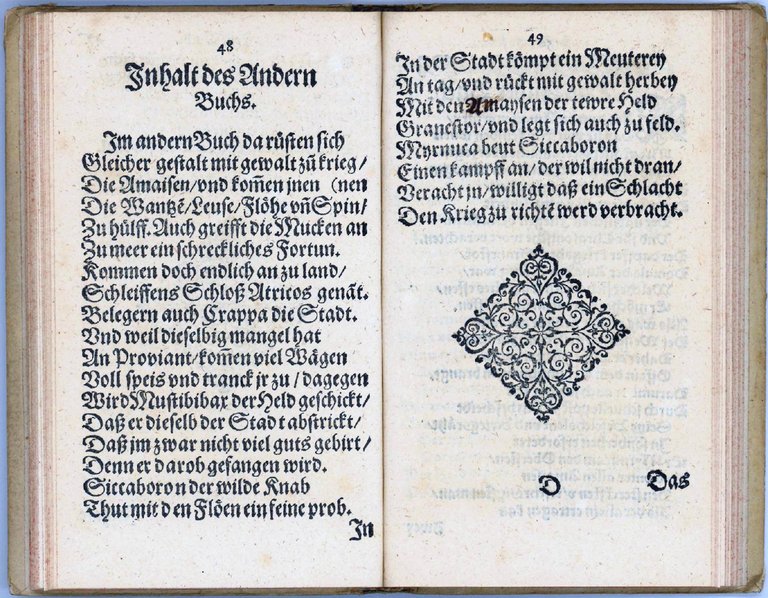 48
Inhalt des Andern
Buchs.
Im andern Buch da rüsten sich
Gleicher gestalt mit gewalt zū krieg/
Die Amaisen/vnd kom̄en jnen (nen
Die Wantzē/Leuse/Flöhe vn̄ Spin/
Zu hülff. Auch greifft die Mucken an
Zu meer ein schreckliches Fortun.
Kommen doch endlich an zu land/
Schleiffens Schloß Atricos genāt.
Belegern auch Crappa die Stadt.
Vnd weil dieselbig mangel hat
An Proviant/kom̄en viel Wägen
Voll speis vnd tranck jr zu/dagegen
Wird Mustibibax der Held geschickt/
Daß er dieselb der Stadt abstrickt/
Daß jm zwar nicht viel guts gebirt/
Denn er darob gefangen wird.
Siccaboron der wilde Knab
Thut mit den Flöen ein feine prob.
In
49
In der Stadt kömpt ein Meuterey
An tag/vnd rückt mit gewalt herbey
Mit den Amaysen der tewre Held
Granestor/vnd legt sich auch zu feld.
Myrnuca beut Siccaboron
Einen kampff an/der wil nicht dran/
Veracht jn/willigt daß ein Schlacht
Den Krieg zu richtē werd verbracht.
D
Das